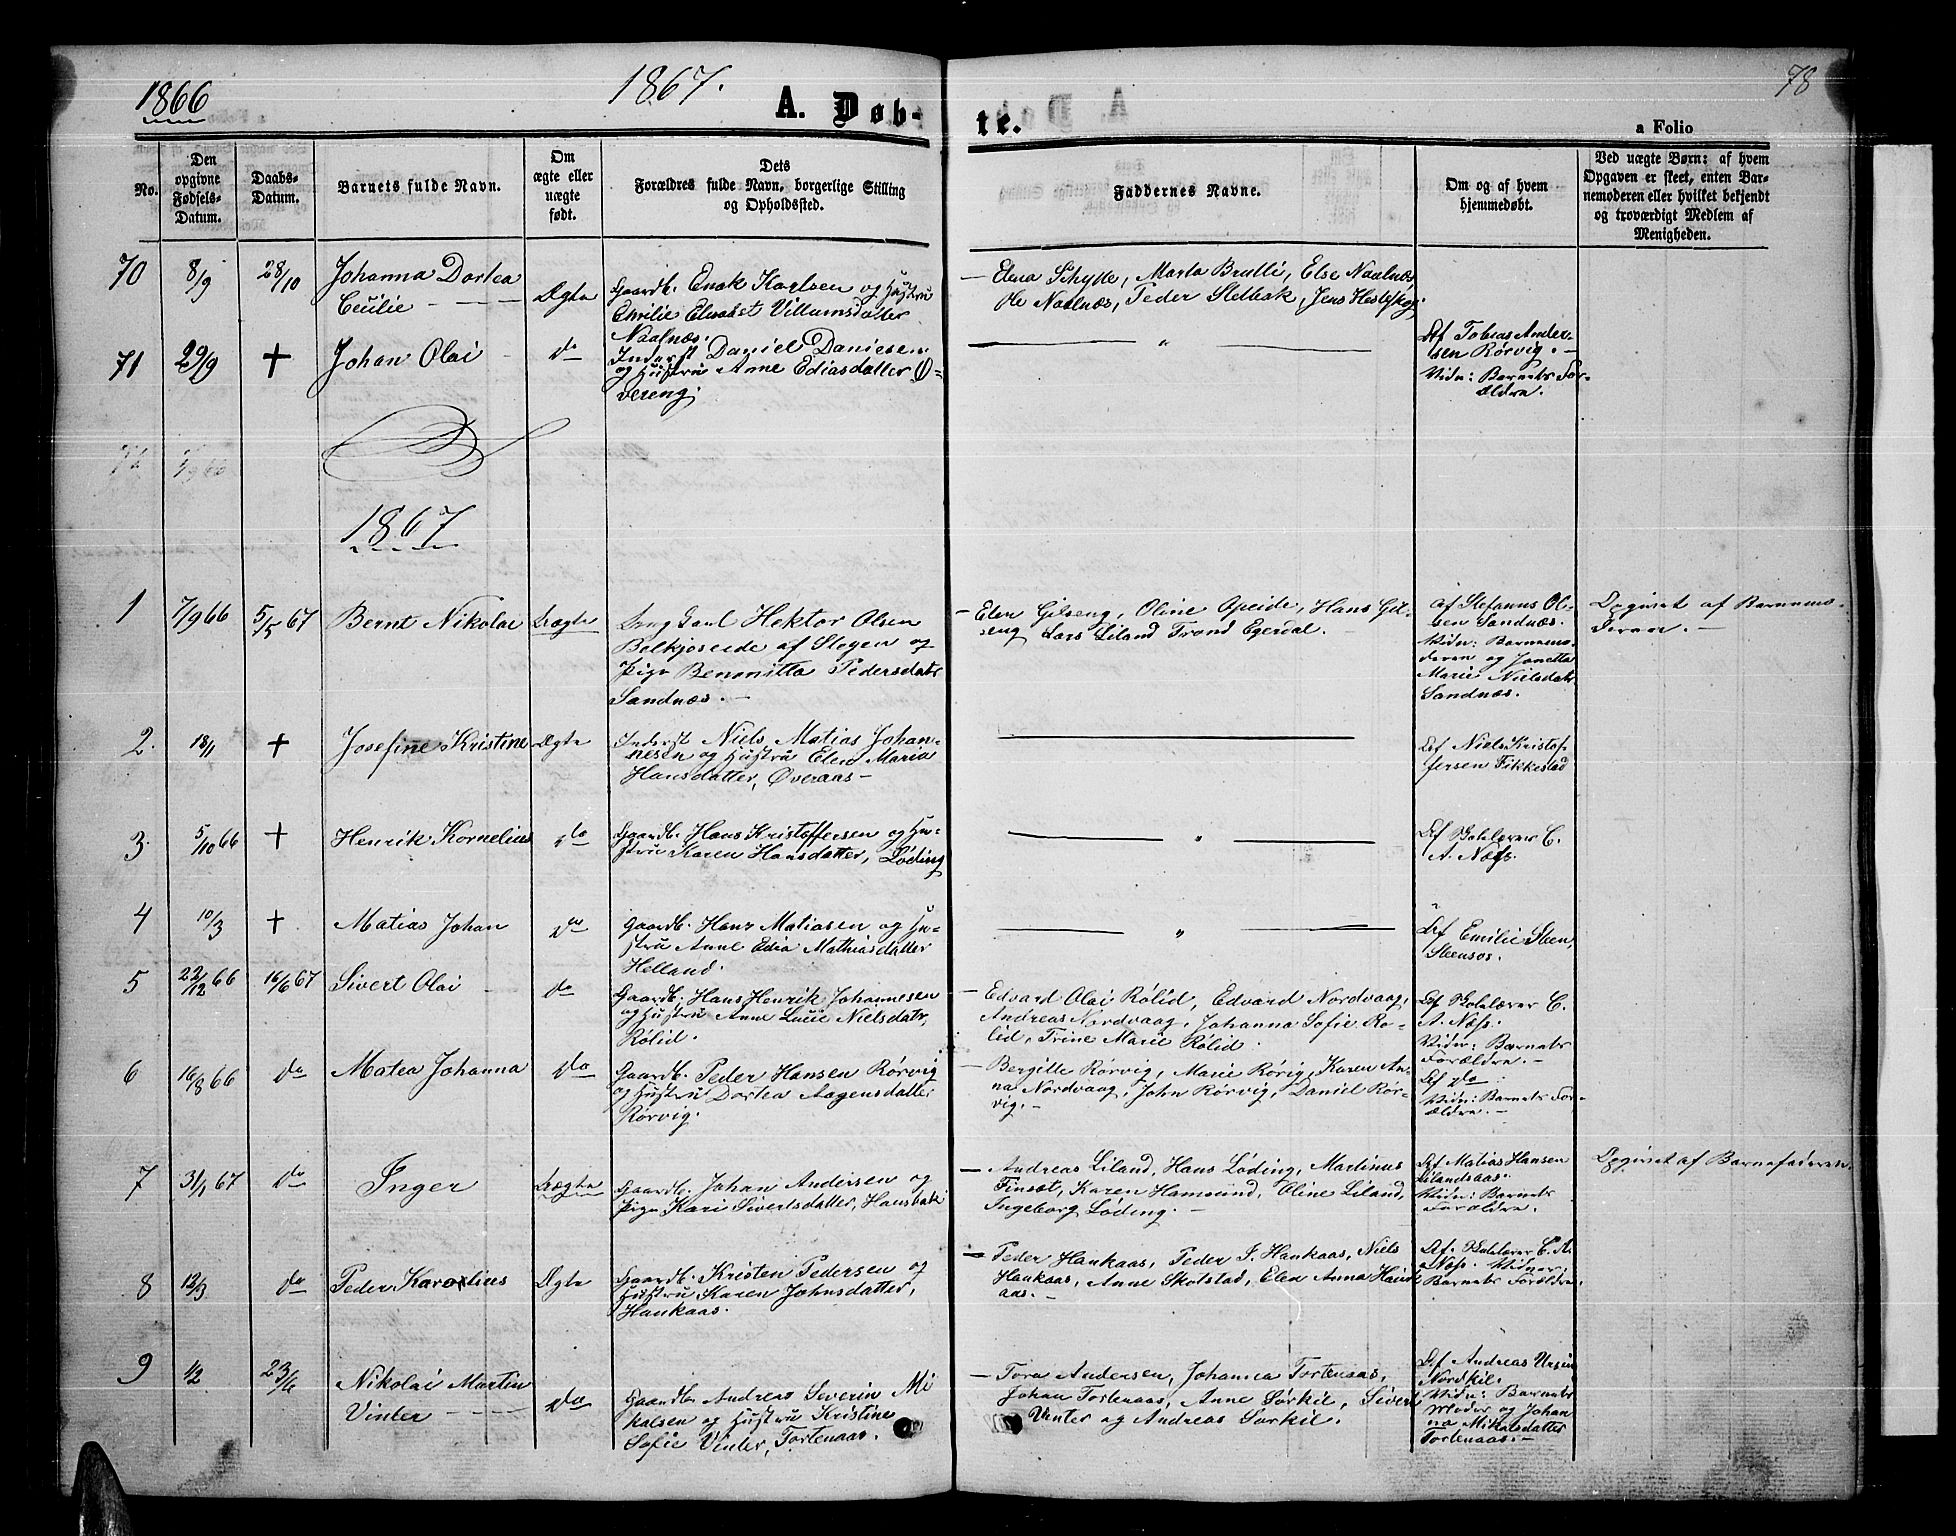 1866
1867.
78
A. Døb-
te.
a Folio
No.
Den opgivne Fødsels-Datum.
Daabs-Datum.
Barnets fulde Navn.
Om ægte eller uægte født.
Dets Forældres fulde Navn, borgerlige Stilling og Opholdssted.
Faddernes Navne.
Om og af hvem hjemmedøbt.
Ved uægte Børn: af hvem Opgaven er skeet, enten Barnemoderen eller hvilket bekjendt og troværdigt Medlem af Menigheden.
70 8/9 28/10 Johanna Dortea
Cecilie
Ægte
Gaardb. Enok Karlsen og Hustru
Elisabet Villumsdatter
Naalnæs.
Elena Marta Else Naalnæs,
Ole Naalnæs, Peder Jens
71 29/9 + Johan Olai do
Inderst Daniel Danielsen
og Hustru Anne Ediasdatter Ø-
vereng.
Af Tobias Ander-
sen Rørvig. -
Vidn: Barnets For-
ældre.
1867
1 7/9 66 5/5 67 Bernt Nikolai Uægte
Ung Hektor Olsen
af Stegen og
Pige Pedersdatr
Sandnæs. -
Elen Gilseng, Oline Opeide, Hans Gil-
seng Lars Liland Trond Egerdal. -
af Stefanus Ol-
sen Sandnæs.
Vidn: Barnemo-
deren og Janetta
Marie Nielsdatr
Sandnæs.
Opgivet af Barnemo-
deren. -
2. 18/1 + Josefine Kristine Ægte
Inderst Niels Matias Johan-
nesen og Hustru Elen Maria
Hansdatter, Øveraas -
Af Niels Kristof-
fersen Fikkestad
3. 5/10 66 + Henrik Kornelius do
Gaardb. Hans Kristoffersen og Hu-
stru Karen Hansdatter, Løding
Af Skolelærer C.
A. Næss.
4 10/3 + Matias Johan do
Gaardb. Hans Matiasen og Hu-
stru Anne Edia Mathiasdatter
Helland.
Af Emilie Steen,
5 22/12 66 16/6 67 Sivert Olai do
Gaardb. Hans Henrik Johannesen
og Hustru Anne Lucie Nielsdatr,
Rølid.
Edvard Olai Rølid, Edvard Nordvaag,
Andreas Nordvaag, Johanna Sofie Rø-
lid, Trine Marie Rølid.
Af Skolelærer C.
A. Næss.
Vidn: Barnets
Forældre. -
6 16/8 66 do Matea Johanna do
Gaardb. Peder Hansen Rørvig
og Hustru Dortea Aagensdatter
Rørvig.
Bergitte Rørvig, Marie Rørvig, Karen An-
na Nordvaag, John Rørvig, Daniel Rør-
vig. -
Af do
Vidn: Barnets For-
ældre. -
7 31/1 67 do Inger Uægte
Gaardb. Johan Andersen og
Pige Kari Sivertsdatter, Hansbak
Andreas Liland, Hans Løding, Martinus
Finsæt, Karen Hamsund, Oline Liland,
Ingeborg Løding. -
Af Matias Hansen
Lilandsaas.
Vidn: Barnets
Forældre.
Opgivet af Barnefaderen.
8 12/3 do Peder Karolius Ægte
Gaardb. Kristen Pedersen og
Hustru Karen Johnsdatter,
Haukaas.
Peder Haukaas, Peder J. Haukaas, Niels
Haukaas, Anne Skotstad, Elen Anna Hauk-
aas. -
Af. Skolelærer C. A.
Næss. Vidner:
Barnets Forældre.
9 1/2 23/6 Nikolai Martin
Vinter
do
Gaardb. Andreas Severin Mi-
kalsen og Hustru Kristine
Sofie Vinter, Tortenaas.
Tora Andersen, Johanna Tortenaas,
Johan Tortenaas, Anne Sørkil, Sivert
Vinter og Andreas Sørkil.
Af Andreas Ursin
Nordkil.
Vidn: Barnets
Moder og Johan-
na Mikalsdatter
Tortenaas. -